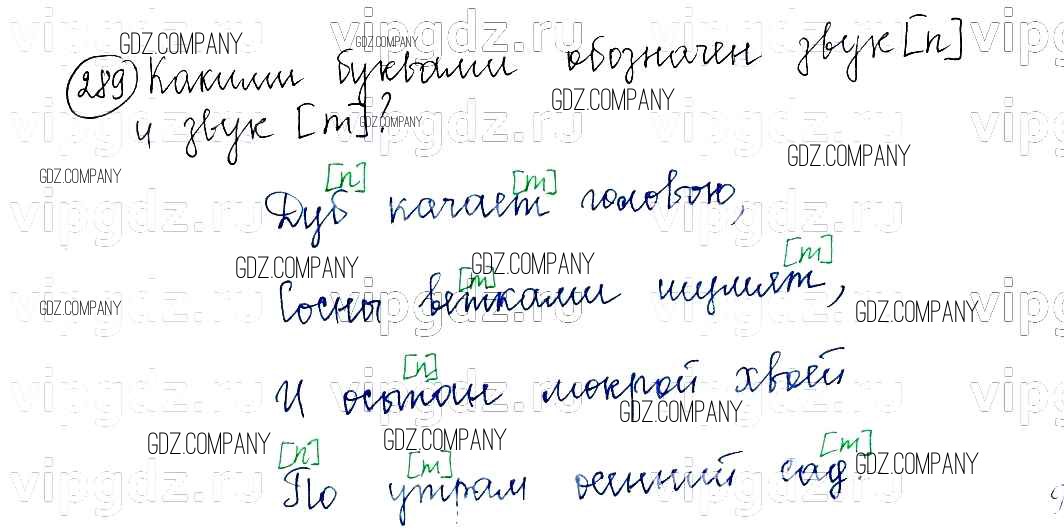 289 Какими буквами обозначен звук [п]
и звук [т]?
[п] [т]
Дуб качает головою,
[т] [т]
Сосны ветками шумят,
[п]
И осыпан мокрой хвоей
[п] [т] [т]
По утрам осенний сад.
GDZ.COMPANY
vipgdz.ru